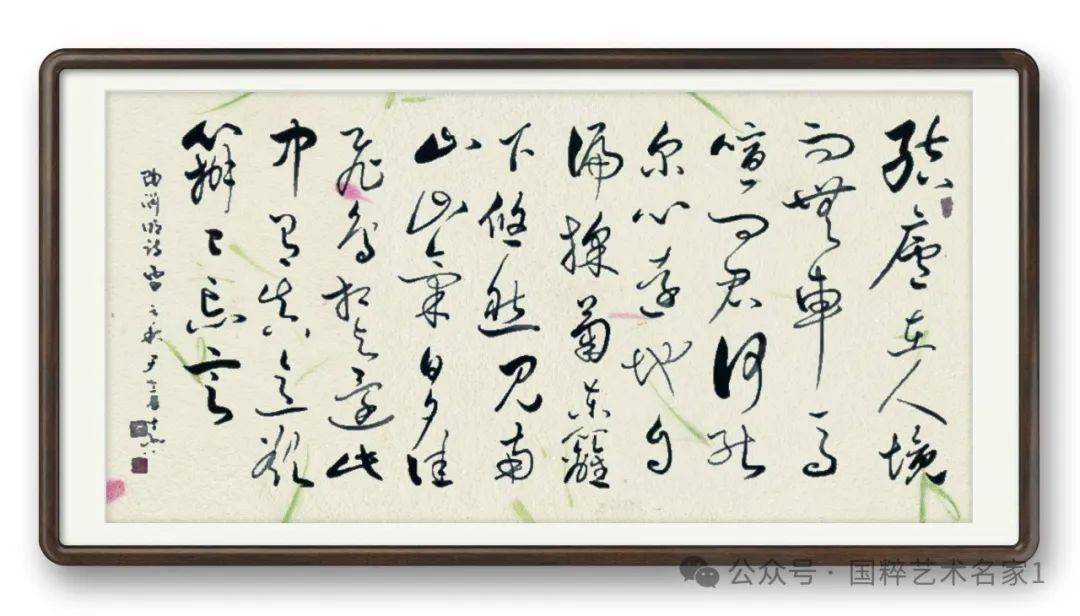 結廬在人境
而無車馬
喧問君何能
尔心遠地自
偏採菊東籬
下悠然見南
山山氣日夕佳
飛鳥相與還此
中有真意欲
辨已忘言
陶淵明詩
公众号 · 国粹艺术名家1